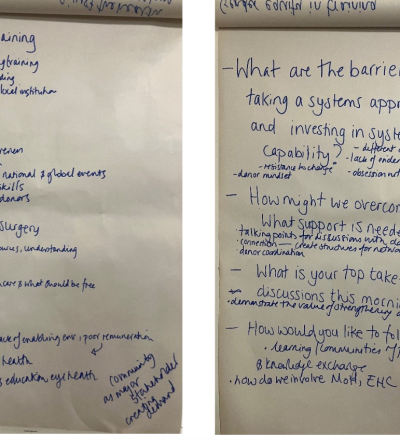 aining
training
ding
local institution
national & global events
skills
donors
surgery
understanding
care & what should be free
lack of enabling env, poor remuneration
health
education, eye health
community
as major
stakeholder
creating
demand
- What are the barrie
taking a systems appr
and investing in syste
capability?
- different
- resistance to change
- lack of under
- donor mindset
- obsession
- How might we overcom
What support is neede
· talking points for discussions with do
· connection — create structures for networ
· donor coordination
- What is your top take
discussions this mornin
· demonstrate the value of strengthening
- How would you like to fol
· learning / communities of
& knowledge exchange
· how do we involve MoH, EHC